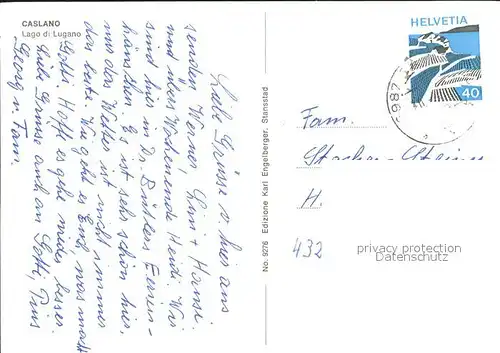 CASLANO
Lago di Lugano
Liebe Grüsse v. hier aus
senden Werner, Lini + Hansi.
und übers Wochenende Heidi. Wir
sind hier in Dr. Bütlers Ferien-
häuschen. Es ist sehr schön hier,
nur das Wetter ist nicht immer
das beste. Wie geht es Euch, was macht
Gotti. Hoffe es gehe wieder besser.
Liebe Grüsse auch an Gotti, Trus
Georg u. Fam.
No. 9276 Edizione Karl Engelberger, Stansstad
HELVETIA
40
6987
Fam.
H.
432
privacy protection
Datenschutz